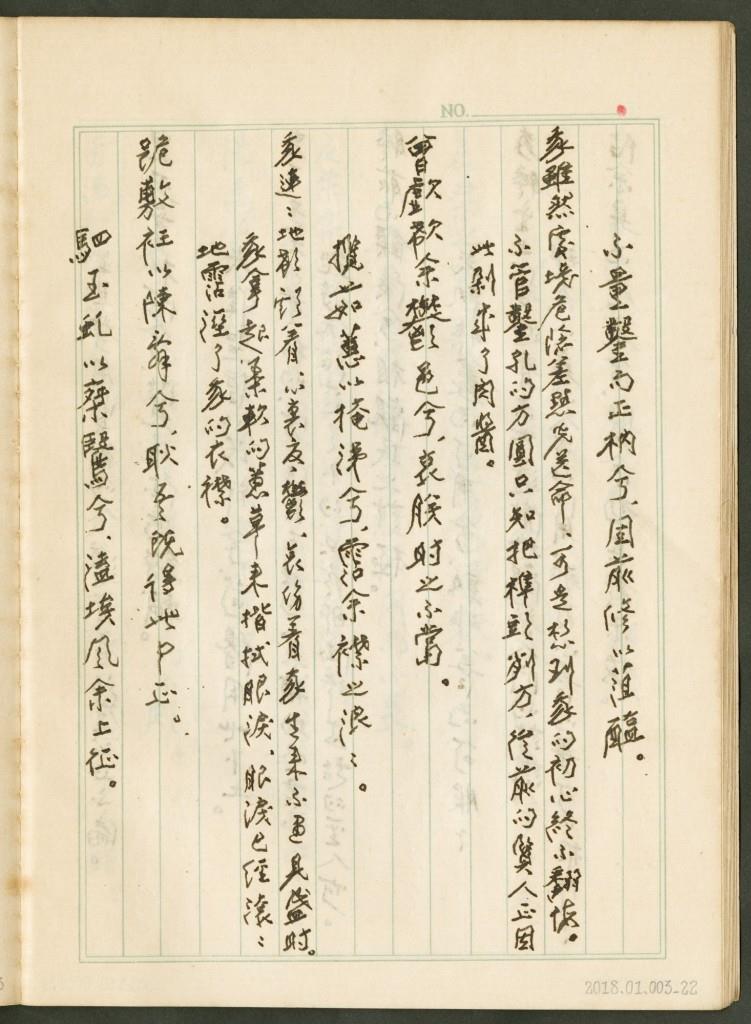 NO.
不量鑿而正枘兮、固前修以菹醢。
我雖然處境危險差點兒送命、可是想到我的初心終不翻悔。
不管鑿孔的方圓只知把榫頭削方、從前的賢人正因
此剁成了肉醬。
曾歔欷余鬱邑兮、哀朕時之不當。
攬茹蕙以掩涕兮、霑余襟之浪〻。
我連〻地歔欷着、心裏鬱、哀傷着我生來不遇見盛時。
我拿起柔軟的蕙草來揩拭眼淚、眼淚已經滾〻
地霑溼了我的衣襟。
跪敷衽以陳辭兮、耿吾既得此中正。
駟玉虬以椉鷖兮、溘埃風余上征。
2018.01.003-22